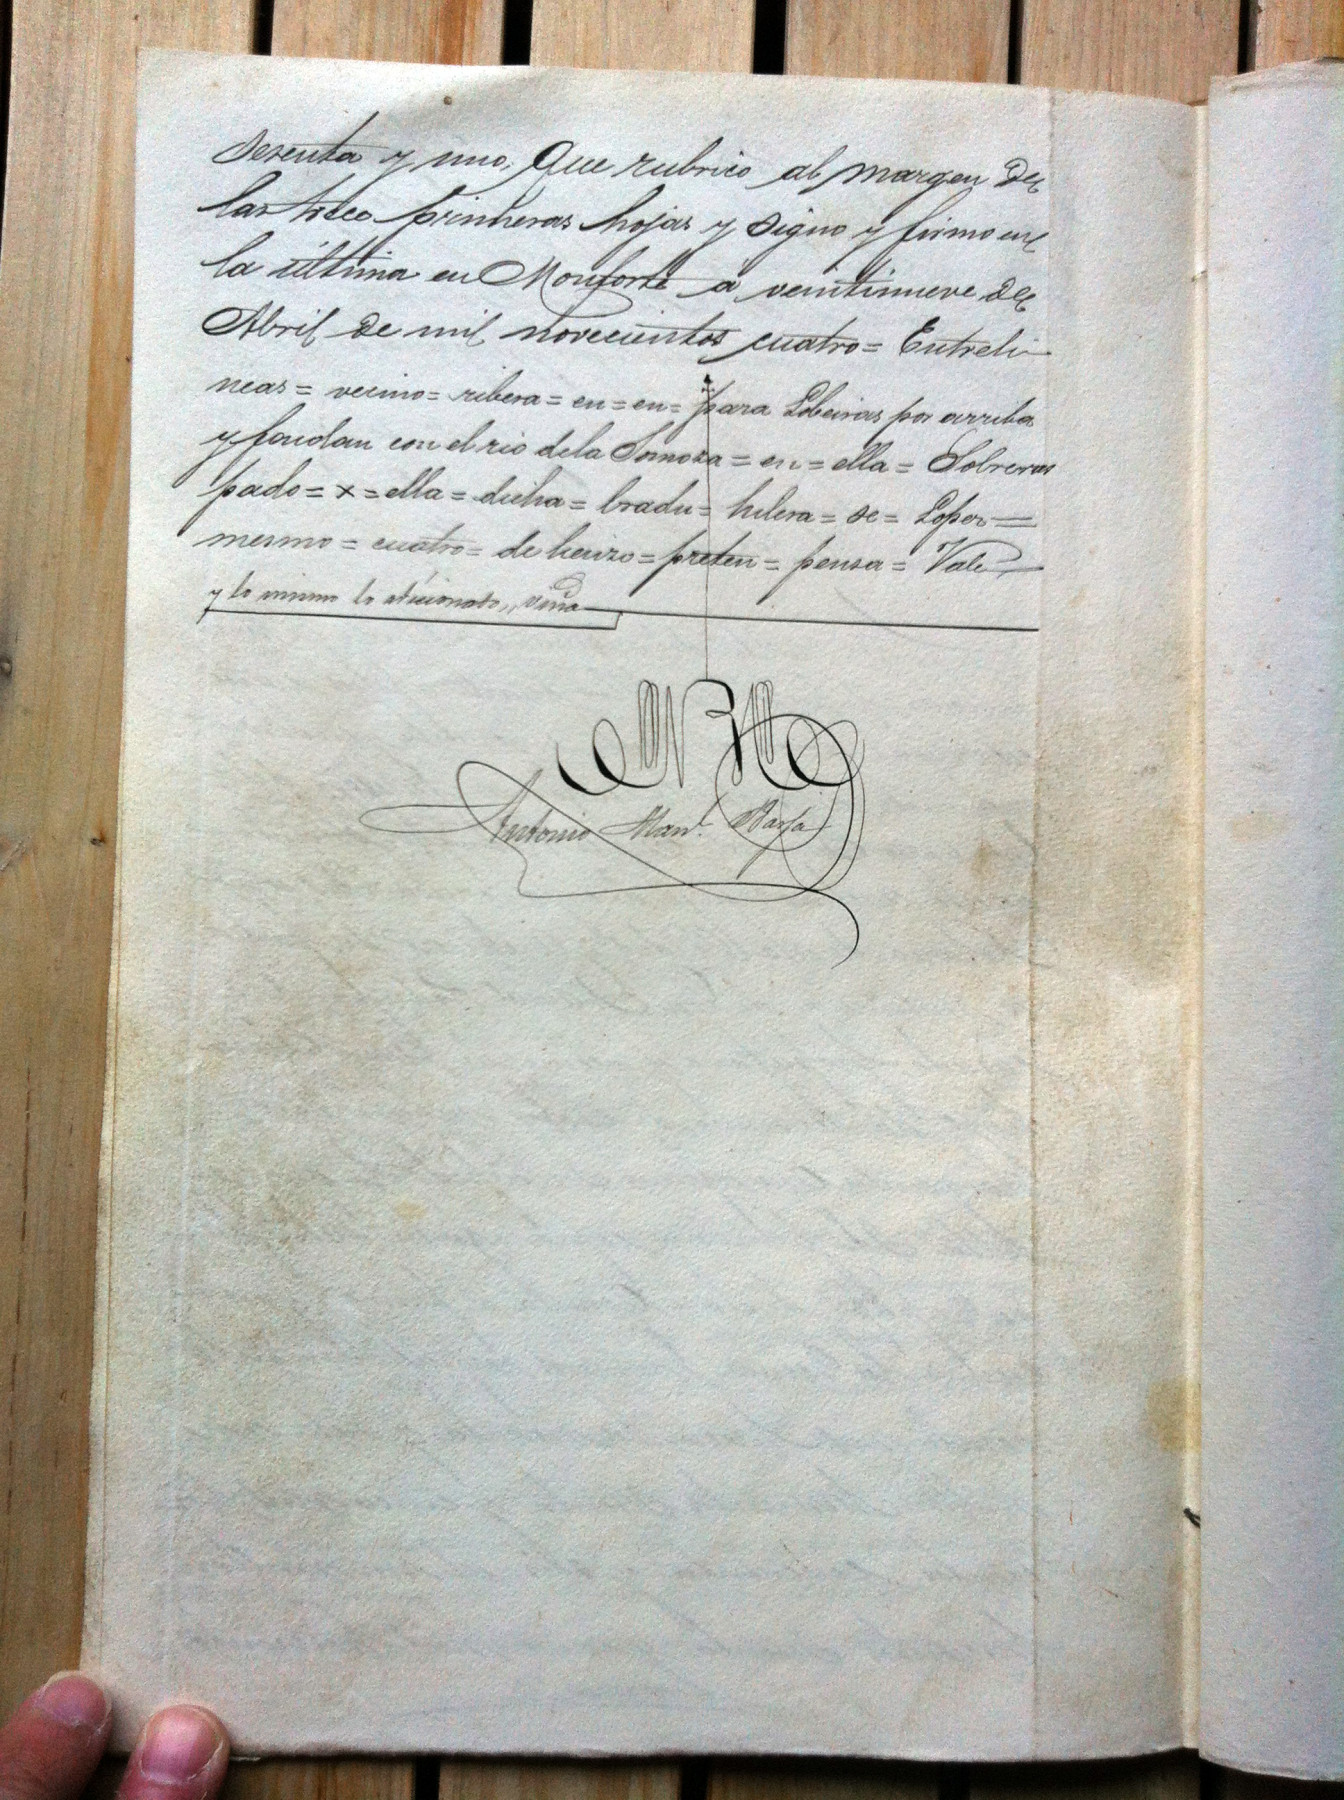 sesenta y uno, Que rubrico al margen de
las trece primeras hojas y signo y firmo en
la última en Monforte a veintinueve de
Abril de mil novecientos cuatro = Entreli-
neas = vecino = ribera = en = en = para Lobeiras por arriba
y fondan con el rio de la Somoza = en = ella = Sobreras
pado = x = ella = dicha = bradu = hilera = se = Lopez =
mesmo = cuatro = de lienzo = preten = pensa = Vale
y lo mismo lo adicionado, viña
Antonio Man.